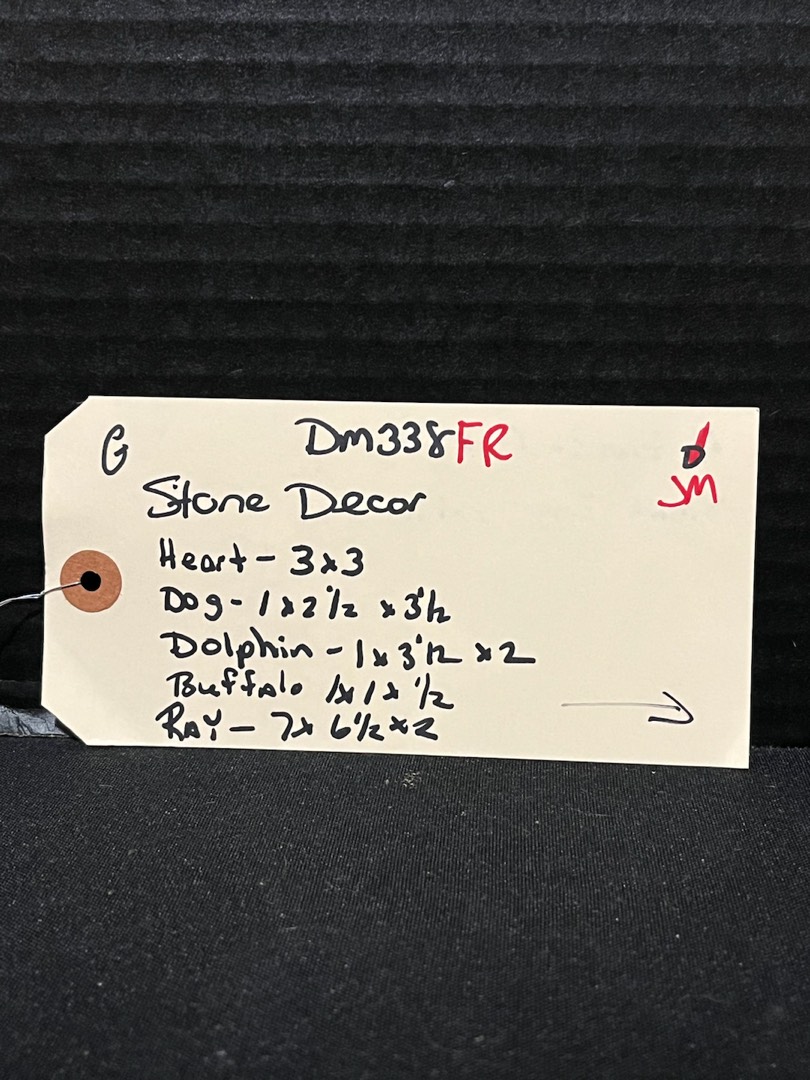 G Dm338FR D
JM
Stone Decor
Heart - 3x3
Dog - 1x2 1/2 x 3 1/2
Dolphin - 1x3 1/2 x2
Buffalo 1x1x 1/2
RAY - 7x 6 1/2 x2